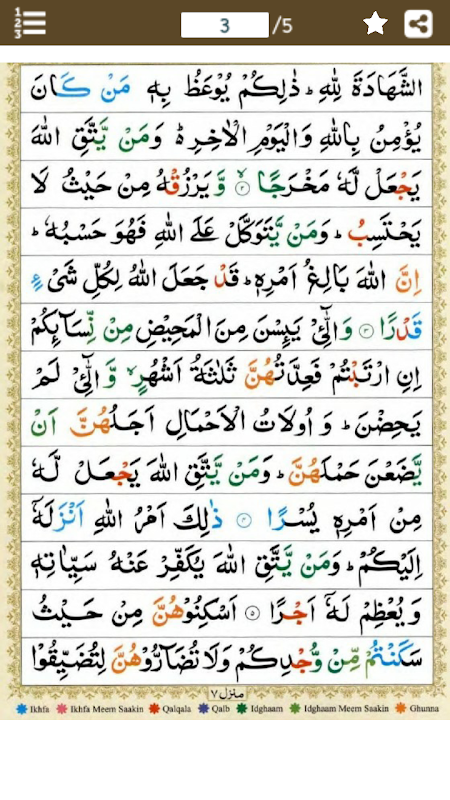 1 2 3
3 /5
الشَّهَادَةَ لِلّٰهِ ؕ ذٰلِكُمْ يُوْعَظُ بِهٖ مَنْ كَانَ
يُؤْمِنُ بِاللّٰهِ وَالْيَوْمِ الْاٰخِرِ ؕ۬ وَمَنْ يَّتَّقِ اللّٰهَ
يَجْعَلْ لَّهٗ مَخْرَجًا ۙ﴿۲﴾ وَّيَرْزُقْهُ مِنْ حَيْثُ لَا
يَحْتَسِبُ ؕ وَمَنْ يَّتَوَكَّلْ عَلَى اللّٰهِ فَهُوَ حَسْبُهٗ ؕ
اِنَّ اللّٰهَ بَالِغُ اَمْرِهٖ ؕ قَدْ جَعَلَ اللّٰهُ لِكُلِّ شَیْءٍ
قَدْرًا ﴿۳﴾ وَالّٰٓـِٔیْ يَئِسْنَ مِنَ الْمَحِيْضِ مِنْ نِّسَآئِكُمْ
اِنِ ارْتَبْتُمْ فَعِدَّتُهُنَّ ثَلٰثَةُ اَشْهُرٍ ۙ وَّالّٰٓـِٔیْ لَمْ
يَحِضْنَ ؕ وَ اُولَاتُ الْاَحْمَالِ اَجَلُهُنَّ اَنْ
يَّضَعْنَ حَمْلَهُنَّ ؕ وَمَنْ يَّتَّقِ اللّٰهَ يَجْعَلْ لَّهٗ
مِنْ اَمْرِهٖ يُسْرًا ﴿۴﴾ ذٰلِكَ اَمْرُ اللّٰهِ اَنْزَلَهٗۤ
اِلَيْكُمْ ؕ وَمَنْ يَّتَّقِ اللّٰهَ يُكَفِّرْ عَنْهُ سَيِّاٰتِهٖ
وَيُعْظِمْ لَهٗۤ اَجْرًا ﴿۵﴾ اَسْكِنُوْهُنَّ مِنْ حَيْثُ
سَكَنْتُمْ مِّنْ وُّجْدِكُمْ وَلَا تُضَآرُّوْهُنَّ لِتُضَيِّقُوْا
منزل ۷
Ikhfa Ikhfa Meem Saakin Qalqala Qalb Idghaam Idghaam Meem Saakin Ghunna